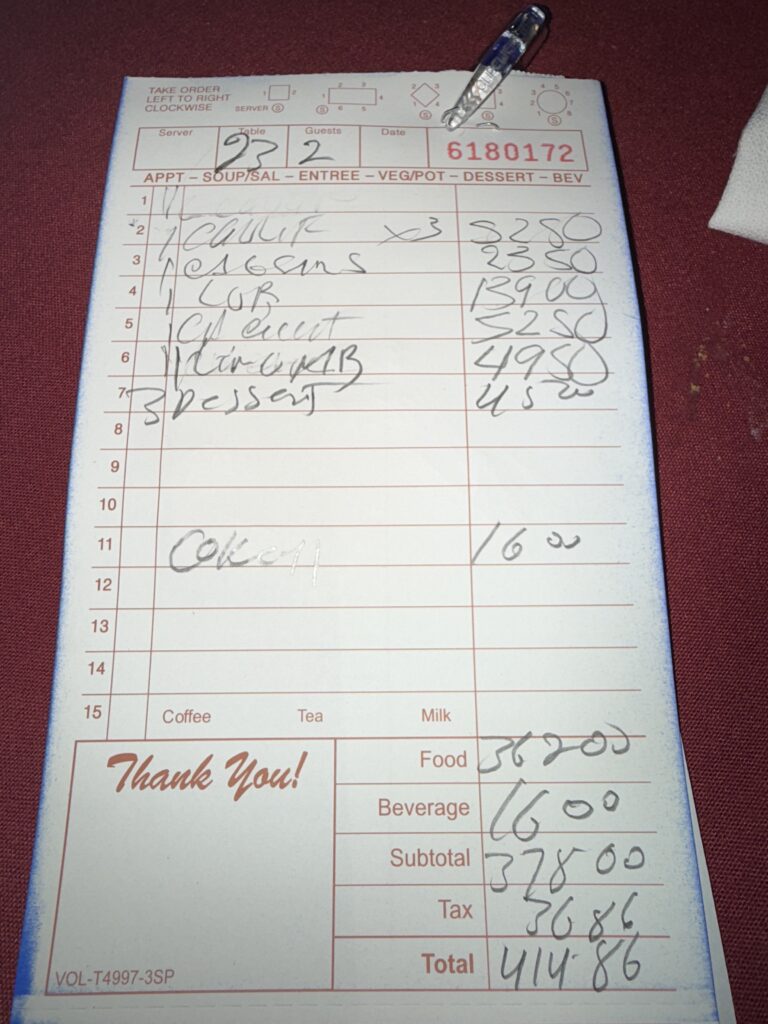 TAKE ORDER
LEFT TO RIGHT
CLOCKWISE
SERVER S
Server Table Guests Date
23 2 6180172
APPT – SOUP/SAL – ENTREE – VEG/POT – DESSERT – BEV
1
2 x3 5250
3 2350
4 13900
5 5250
6 4950
7 3 Dessert 4500
8
9
10
11 1600
12
13
14
15 Coffee Tea Milk
Thank You!
Food 36200
Beverage 1600
Subtotal 37800
Tax 3686
Total 414.86
VOL-T4997-3SP